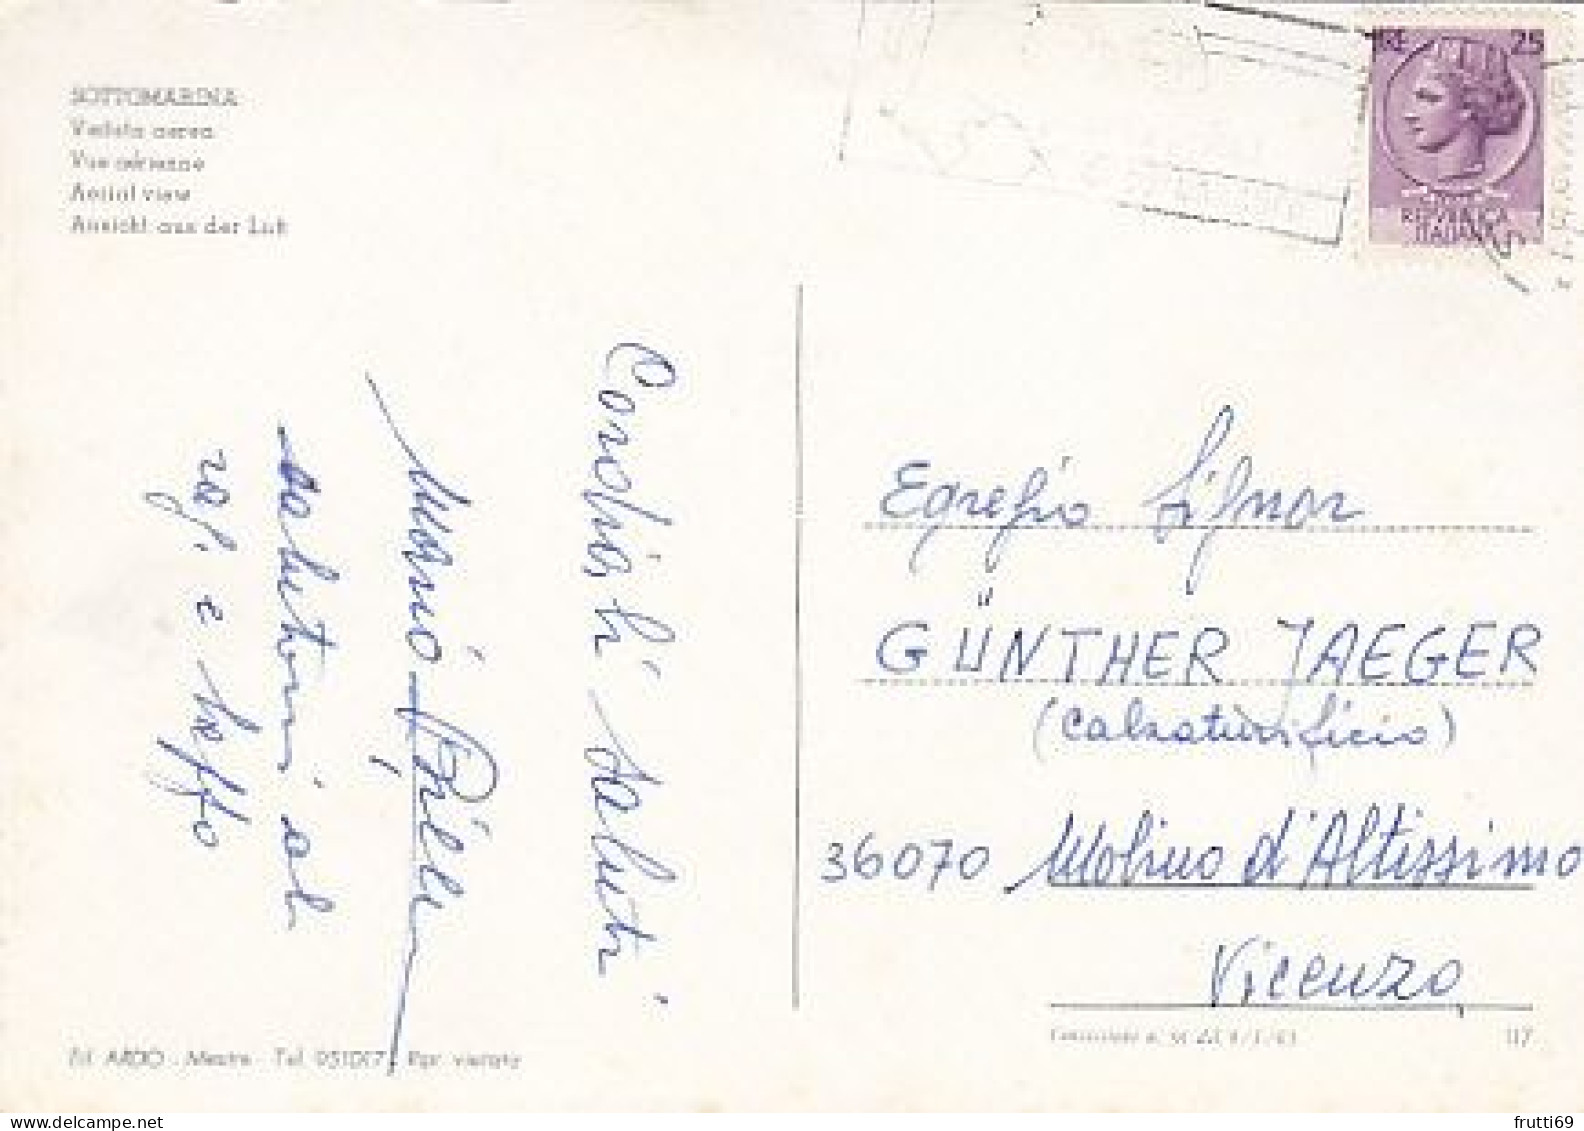 SOTTOMARINA
Veduta aerea
Vue aérienne
Aerial view
Ansicht aus der Luft
LIRE 25
REPVBBLICA
ITALIANA
Cordiali saluti
Mario
salutoni al
rag. e
Egregio Signor
GÜNTHER JAEGER
(Calzaturificio)
36070 Molino d'Altissimo
Vicenza
Ed. ARDO - Mestre - Tel. 951017 Ripr. vietata
117
frutti69